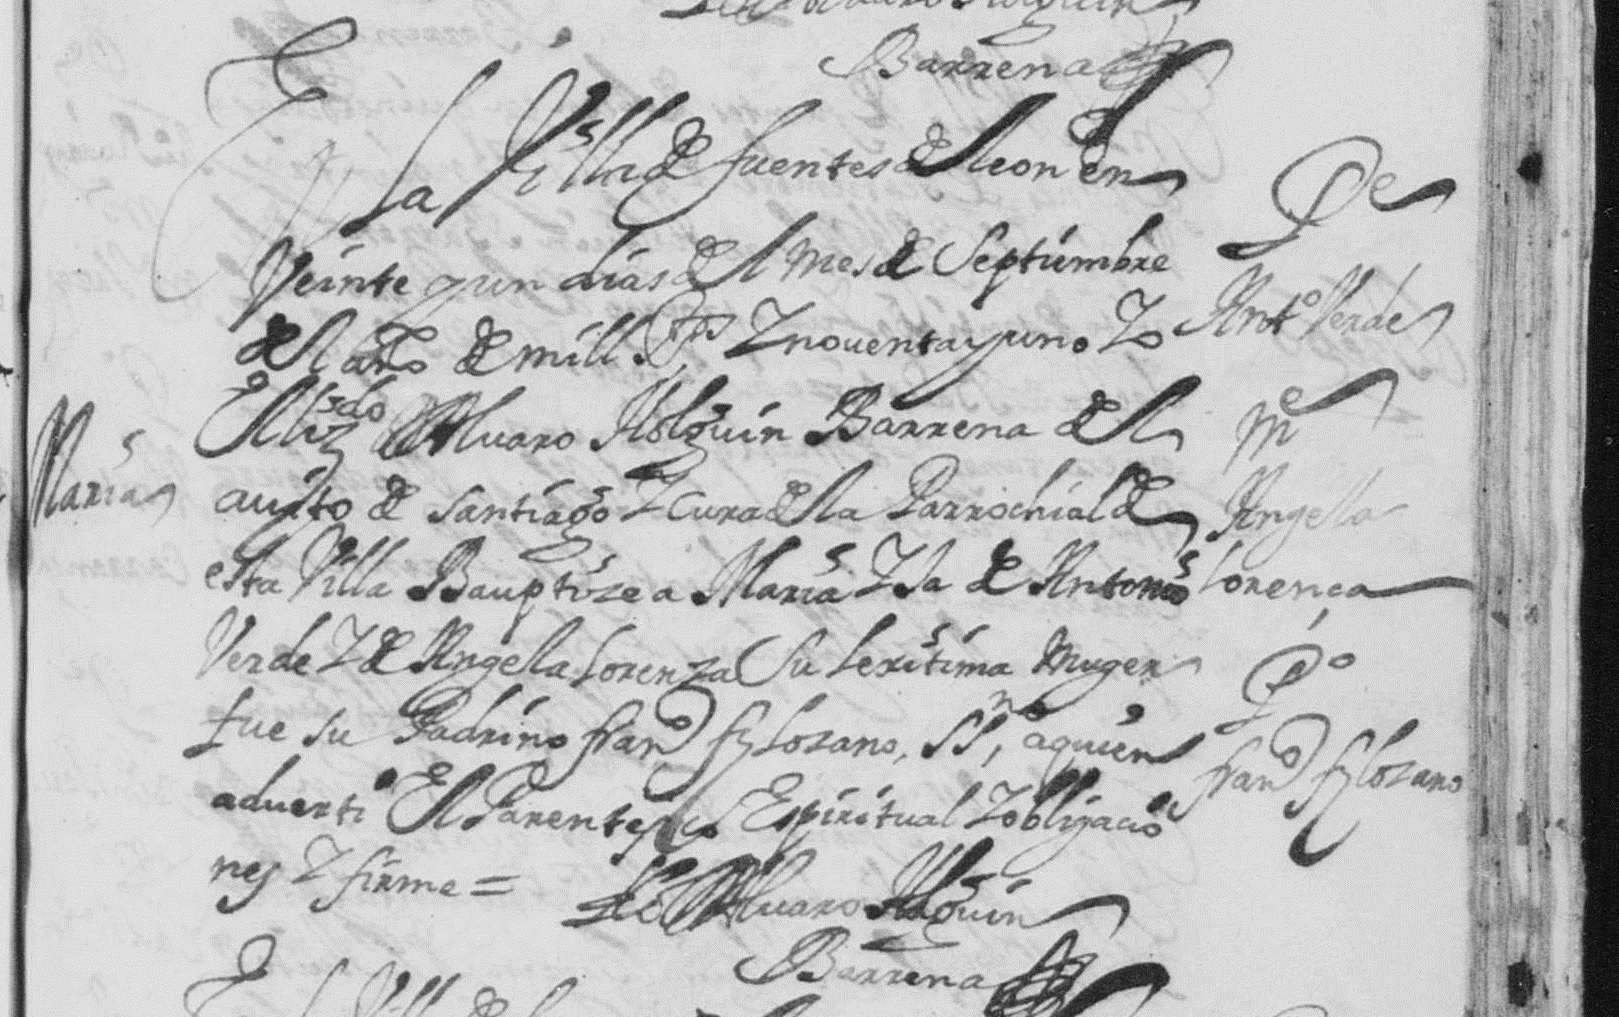 Barrena
En la Villa de fuentes de leon en
Veinte y un dias del mes de Septiembre
del año de mill y noventa y uno Yo
El lizdo D Alvaro Holguin Barrena del
auito de santiago Y cura de la Parrochial de
esta Villa Bauptize a Maria Yja de Antonio
Verde Y de Angella Lorenza su Lexitima Muger
fue su Padrino franco fz Lozano, aquien
aduerti El Parentesco Espiritual Y obligacio
nes Y firme =
Lizdo D Alvaro Holguin
Barrena
Maria
Pe
Anto Verde
Me
Angella
Lorença
Po
franco fz lozano